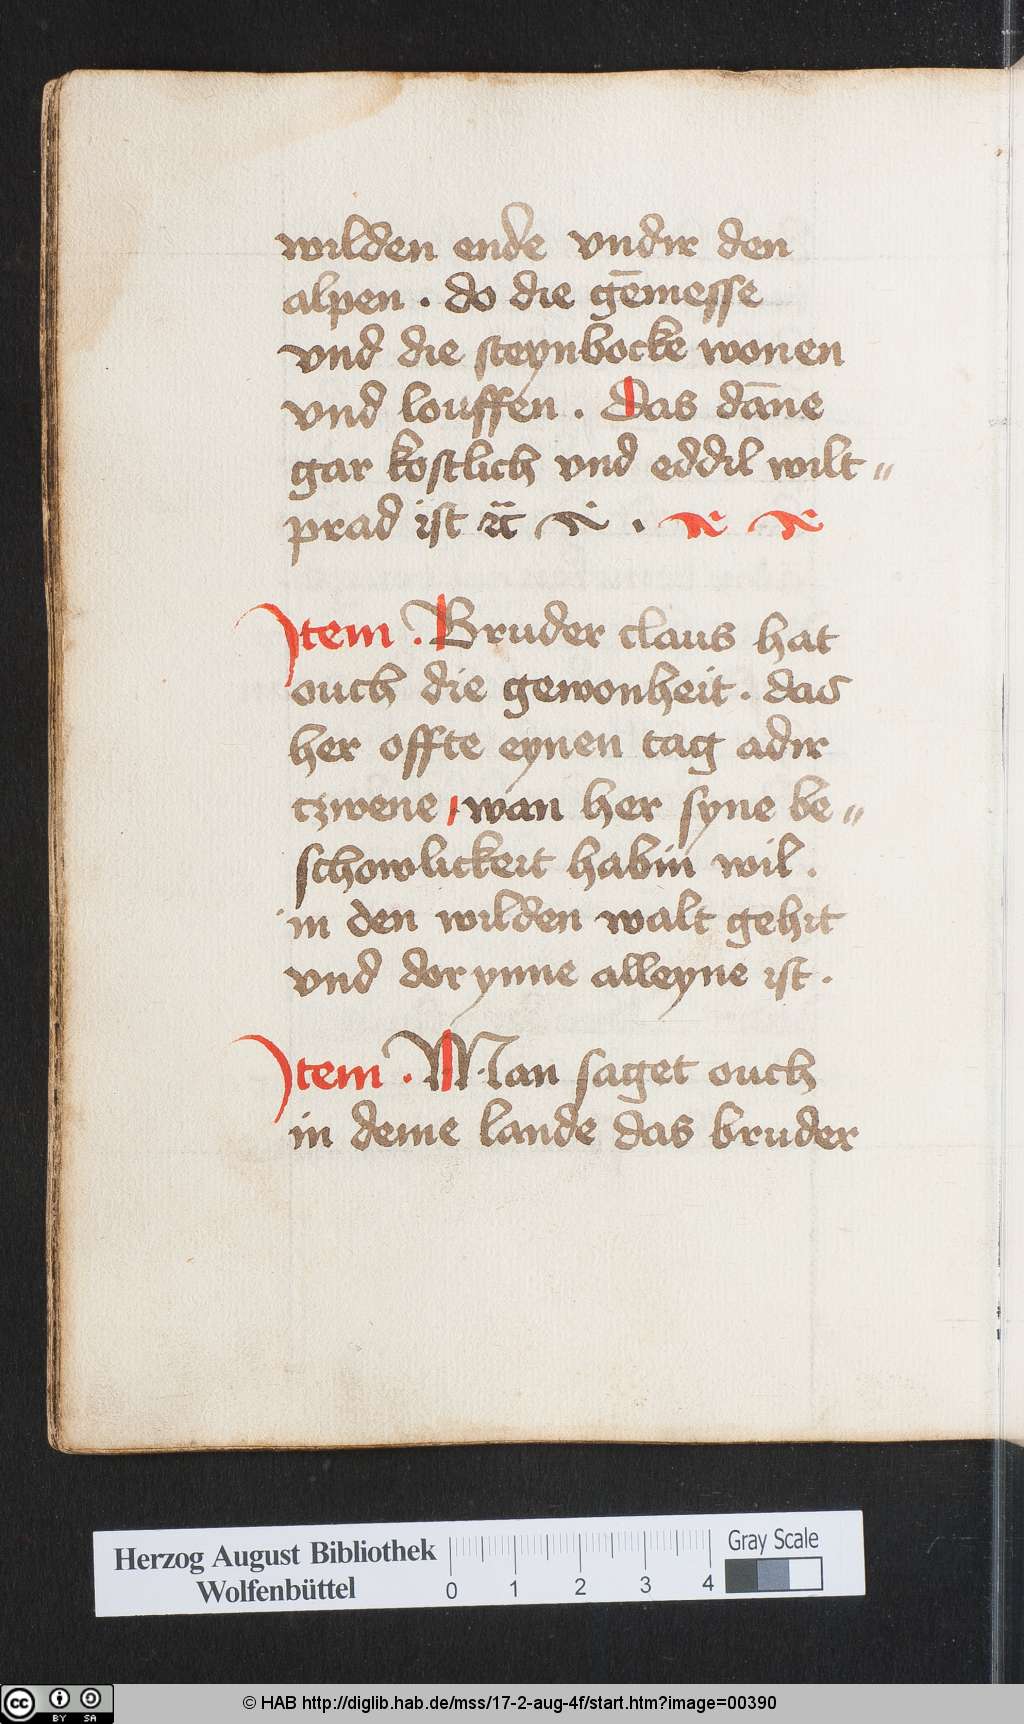 wilden ende vndir den
alpen . do die gēmesse
vnd die steynbocke wonen
vnd louffen . Das dāne
gar kostlich vnd eddil wilt„
prad ist
Item . Bruder claus hat
ouch die gewonheit . das
her offte eynen tag adir
czwene , wan her syne be„
schowlickeit habin wil .
in den wilden walt gehit
vnd dor ynne alleyne ist .
Item . Man saget ouch
in deme lande das bruder
Herzog August Bibliothek
Wolfenbüttel
0 1 2 3 4
Gray Scale
cc BY SA
© HAB http://diglib.hab.de/mss/17-2-aug-4f/start.htm?image=00390